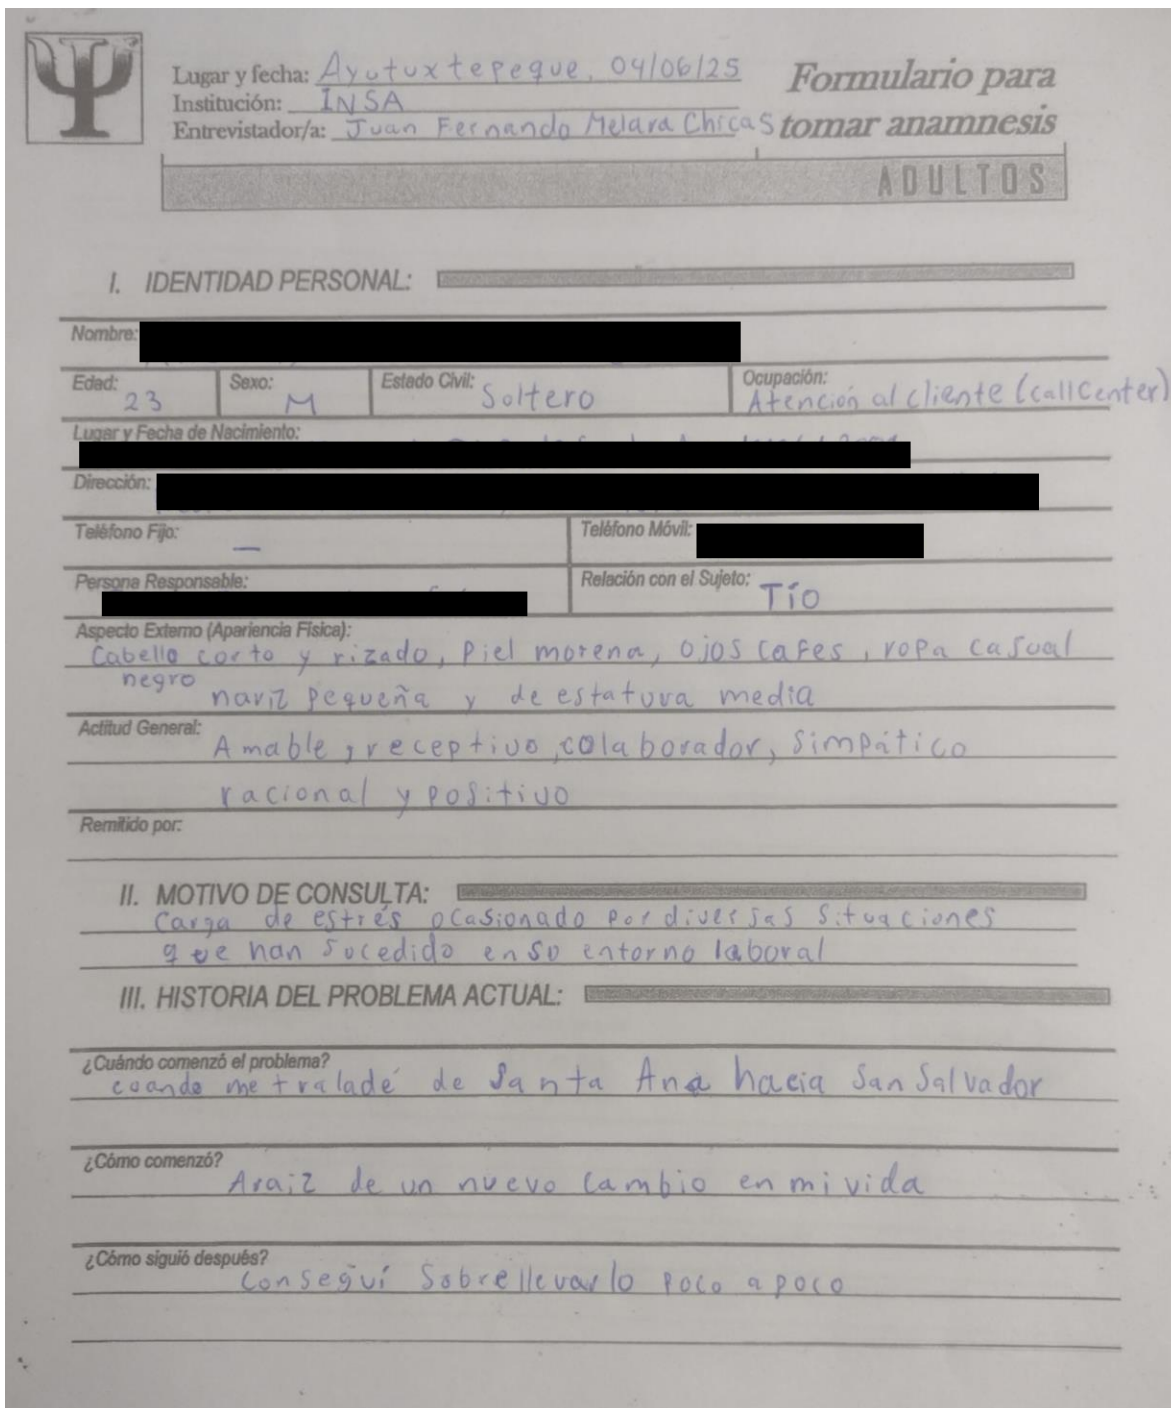 Lugar y fecha: Ayutuxtepeque, 04/06/25
Institución: INSA
Entrevistador/a: Juan Fernando Melara Chicas
Formulario para
tomar anamnesis
ADULTOS
I. IDENTIDAD PERSONAL:
Nombre:
Edad: 23 Sexo: M Estado Civil: Soltero Ocupación: Atención al cliente (callCenter)
Lugar y Fecha de Nacimiento:
Dirección:
Teléfono Fijo: — Teléfono Móvil:
Persona Responsable: Relación con el Sujeto: Tío
Aspecto Externo (Apariencia Física):
Cabello corto y rizado, Piel morena, ojos cafes, ropa casual
negro nariz pequeña y de estatura media
Actitud General:
Amable, receptivo, colaborador, simpático
racional y positivo
Remitido por:
II. MOTIVO DE CONSULTA:
Carga de estrés ocasionado por diversas situaciones
que han sucedido en su entorno laboral
III. HISTORIA DEL PROBLEMA ACTUAL:
¿Cuándo comenzó el problema?
cuando me traladé de Santa Ana hacia San Salvador
¿Cómo comenzó?
Araiz de un nuevo cambio en mi vida
¿Cómo siguió después?
Conseguí sobrellevarlo poco a poco